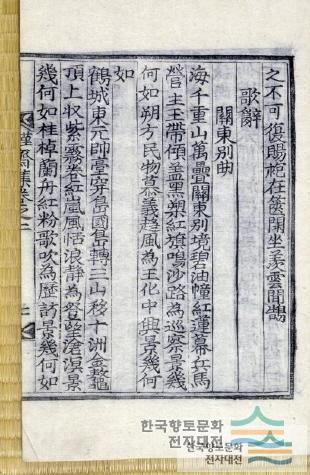 之不可復賜在篋閑坐羨雲間
歌辭
關東別曲
海千重山萬疊關東別境碧油幢紅蓮幕兵馬
營主玉帶傾盖黑槊紅旗鳴沙路爲巡察景幾
何如朔方民物慕義趨風爲王化中興景幾何
如
鶴城東元帥臺穿島國島轉三山移十洲金鼇
頂上收紫霧卷紅嵐風恬浪靜爲登望滄溟景
幾何如桂棹蘭舟紅粉歌吹爲歷訪景幾何如
謹齋集卷之二
한국향토문화
전자대전
한국향토문화
전자대전